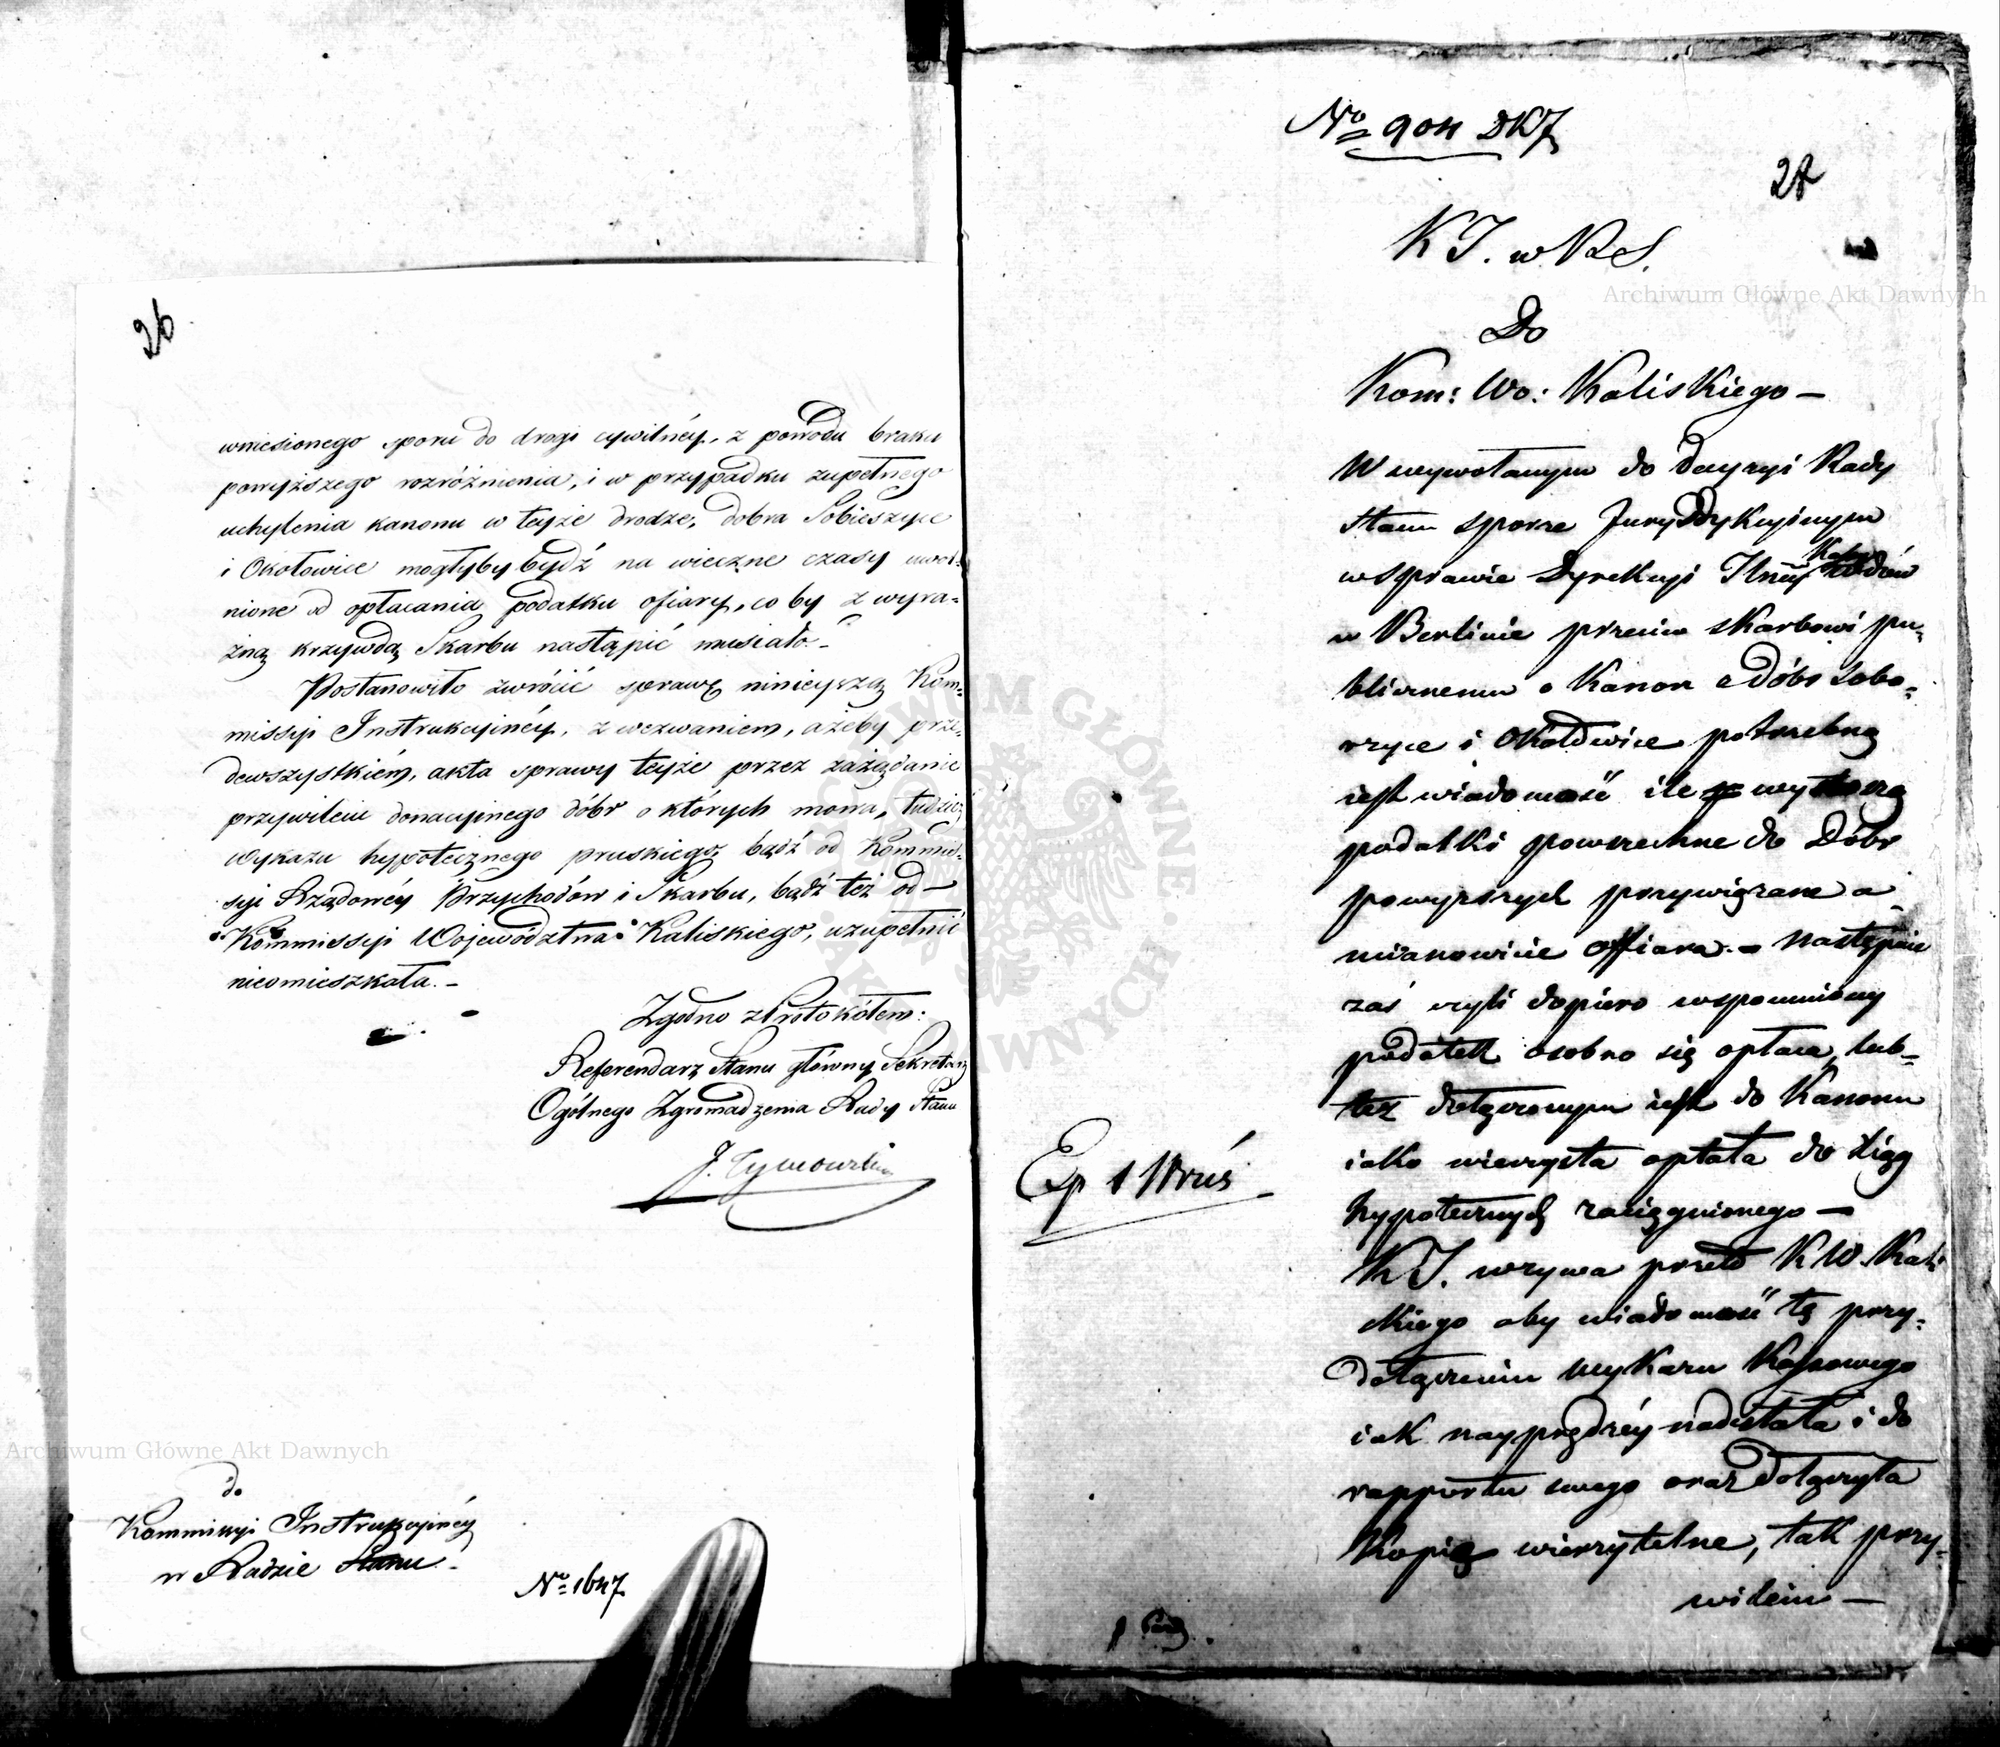 26
wniesionego sporu do drogi cywilnéy, z powodu braku
powyższego rozróżnienia, i w przypadku zupełnego
uchylenia kanonu w teyże drodze, dobra Sobieszyce
i Okołowice mogłyby bydź na wieczne czasy uwol-
nione od opłacania podatku ofiary, co by z wyra-
źną krzywdą Skarbu nastąpić musiało.-
Postanowiło zwrócić sprawę ninieyszą Kom-
missyi Instrukcyinéy, z wezwaniem, ażeby prze-
dewszystkiém, akta sprawy teyże przez zażądanie
przywileiu donacyinego dóbr o których mowa, tudzież
wykazu hypotecznego pruskiego, bądź od Kommis-
syi Rządowéy Przychodów i Skarbu, bądź też od
Kommissyi Województwa Kaliskiego, uzupełnić
nieomieszkała.-
Zgodno z Protokółem:
Referendarz Stanu główny Sekretarz
Ogólnego Zgromadzenia Rady Stanu
J. Tymowski
do
Kommissyi Instrukcyinéy
w Radzie Stanu.
No 1647
No 904 DKJ
27
KJ. w RS.
Do
Kom: Wo: Kaliskiego —
W wywołanym do decyzyi Rady
Stanu sporze Juryzdykcyinym
w sprawie Dyrekcyi
w Berlinie przeciw Skarbowi pu-
blicznemu o Kanon z Dóbr Sobo-
rzyce i Okołowice potrzebną
iest wiadomość ile wynoszą
podatki powszechne do Dóbr
powyższych przywiązane a
mianowicie offiara. - Następnie
zaś czyli dopiero wspomniony
podatek osobno się opłaca, lub-
też dołączonym iest do Kanonu
iako wieczysta opłata do xiąg
hypotecznych zaciągnionego —
KJ. wzywa przeto KW. Kali-
skiego aby wiadomość tę przy-
dołączeniu wykazu Kassowego
iak nayprędzéy nadesłała i do
rapportu swego oraz dołączyła
Kopię wierzytelne, tak przy-
wileiu —
Archiwum Główne Akt Dawnych
Archiwum Główne Akt Dawnych